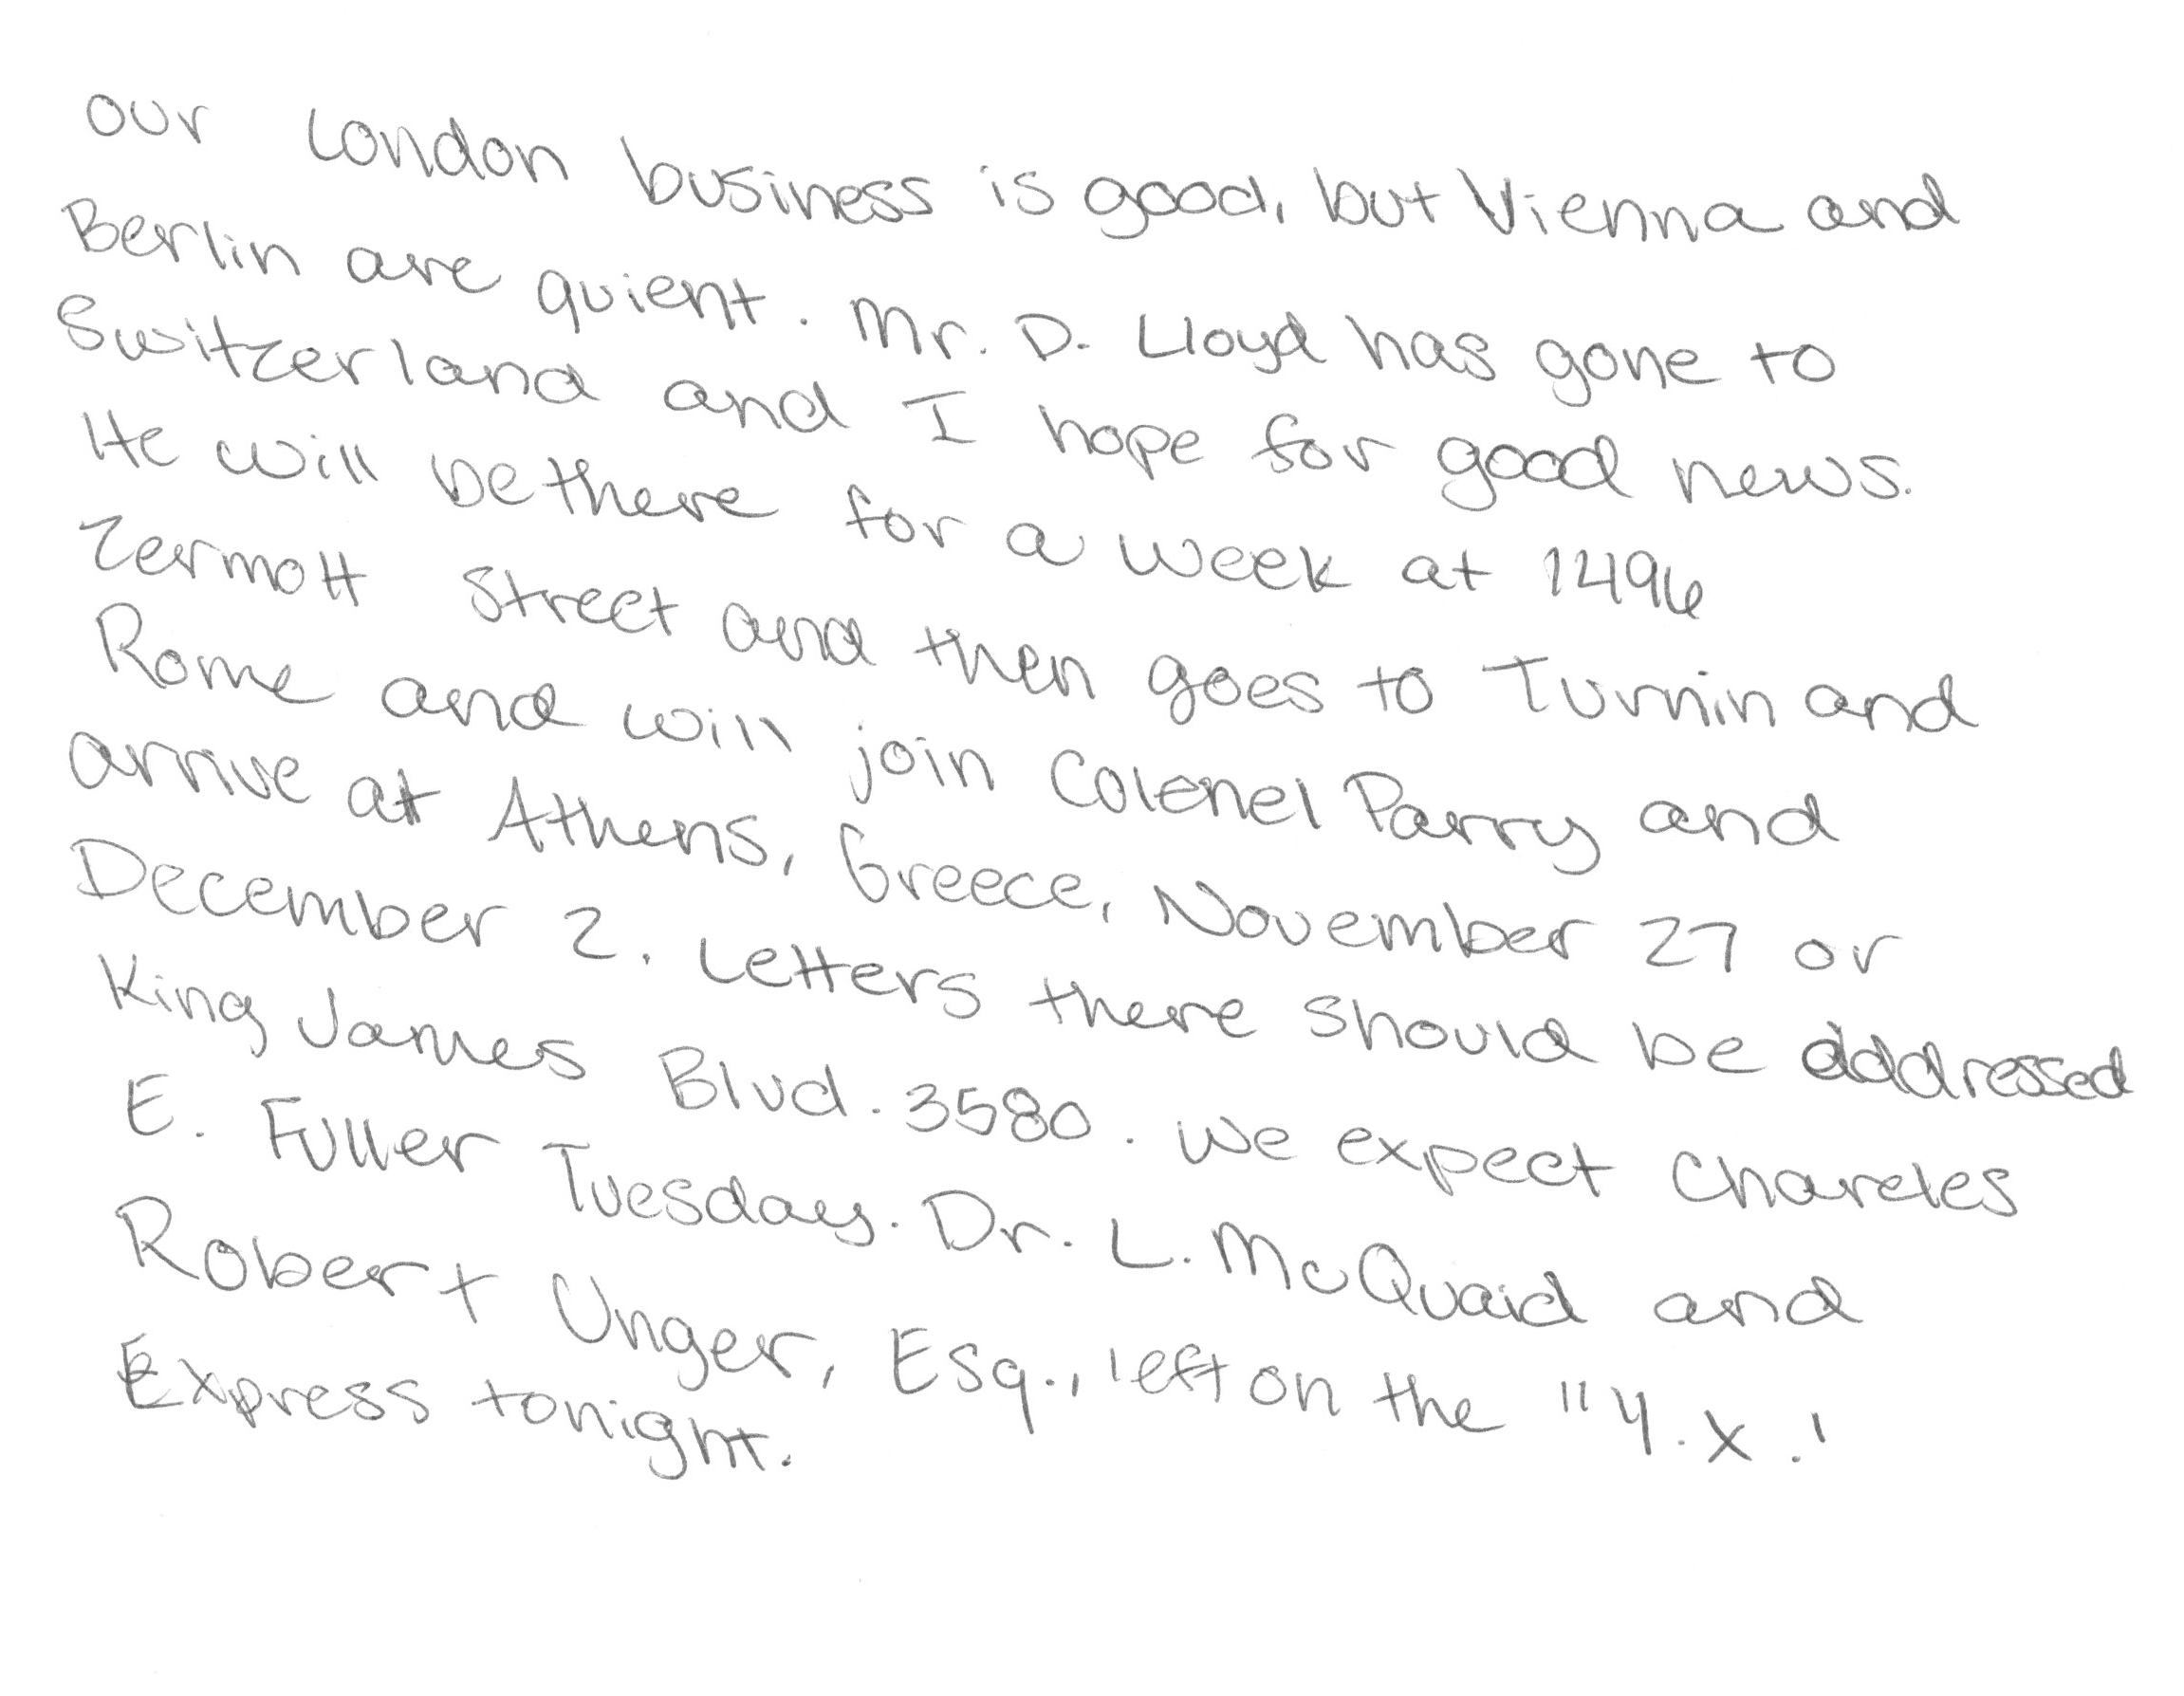 our London business is good, but Vienna and
Berlin are quient. Mr. D. Lloyd has gone to
Switzerland and I hope for good news.
He will be there for a week at 1496
Zermott Street and then goes to Turnin and
Rome and will join Colenel Parry and
arrive at Athens, Greece, November 27 or
December 2. Letters there should be addressed
King James Blvd. 3580. We expect Chareles
E. Fuller Tuesday. Dr. L. McQuaid and
Robert Unger, Esq., left on the "Y.X.'
Express tonight.